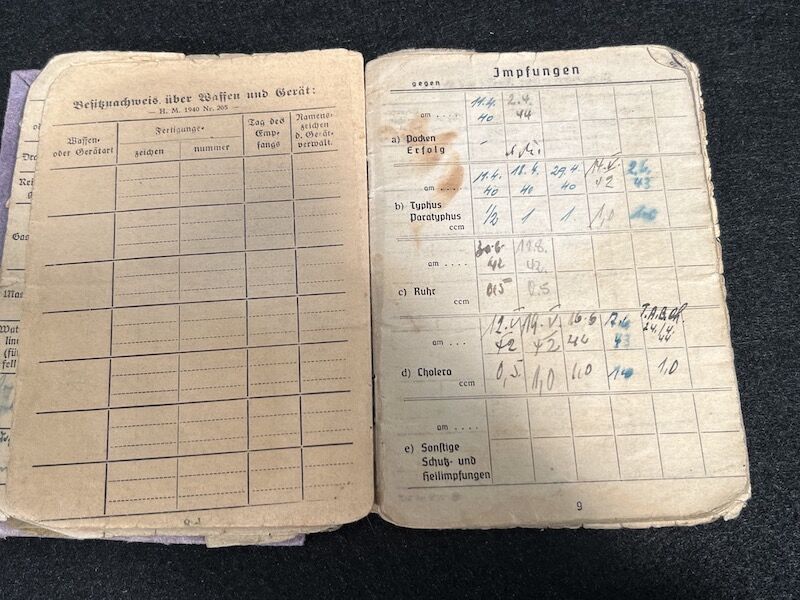 Besitznachweis über Waffen und Gerät:
— H. M. 1940 Nr. 265 —
Waffen- oder Gerätart
Fertigungs-
zeichen
nummer
Tag des Emp- fangs
Namens- zeichen d. Gerät- verwalt.
Impfungen
gegen
am ....
11.4. 40
2.4. 44
a) Pocken
Erfolg
am ....
11.4. 40
18.4. 40
29.4. 40
14.V. 42
2.6. 43
b) Typhus
Paratyphus
ccm
1/2
1
1.
1,0
1.0
am ....
30.6 42
12.8. 42.
c) Ruhr
ccm
0.5
0.5
am ....
12.V 42
19.V. 42
43
24./4. 44.
d) Cholera
ccm
0,5
1,0
1,0
1,0
am ....
e) Sonstige
Schutz- und
Heilimpfungen
9